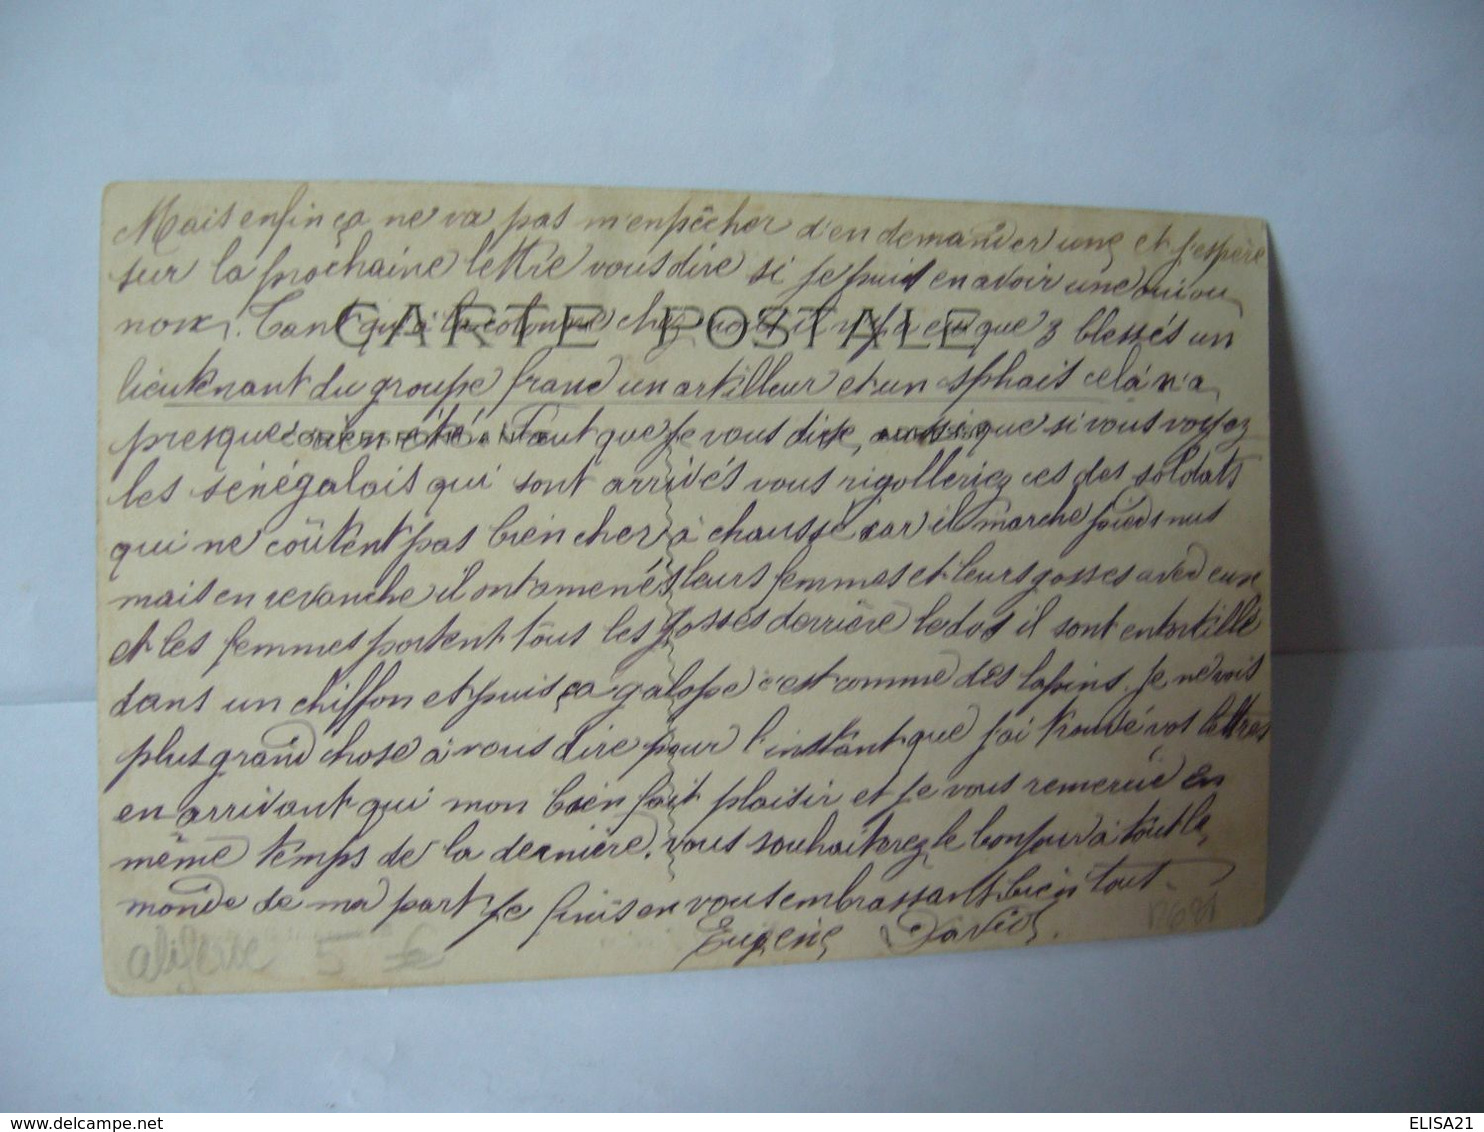 Mais enfin ça ne va pas m'enpêcher d'en demander une et j'espère
sur la prochaine lettre vous dire si je puis en avoir une oui ou
non. Tant qu'à la colonne chez nous il n'y a eu que 3 blessés un
CARTE POSTALE
lieutenant du groupe franc un artilleur et un sphais cela n'a
presque rien été. Tout que je vous dise, aussi que si vous voyez
CORRESPONDANCE
les sénégalais qui sont arrivés vous rigolleriez ces des soldats
qui ne coûtent pas bien cher à chaussé car il marche pieds nus
mais en revanche il ont amenés leurs femmes et leurs gosses avec eux
et les femmes portent tous les gosses derrière le dos il sont entortillé
dans un chiffon et puis ça galope c'est comme des lapins. Je ne vois
plus grand chose à vous dire pour l'instant que j'ai trouvé vos lettres
en arrivant qui mon bien fait plaisir et je vous remercie en
même temps de la dernière. vous souhaiterez le bonjour à tout le
monde de ma part je finis en vous embrassant bien tout
Eugène David.
algerie 5 €
ELISA21